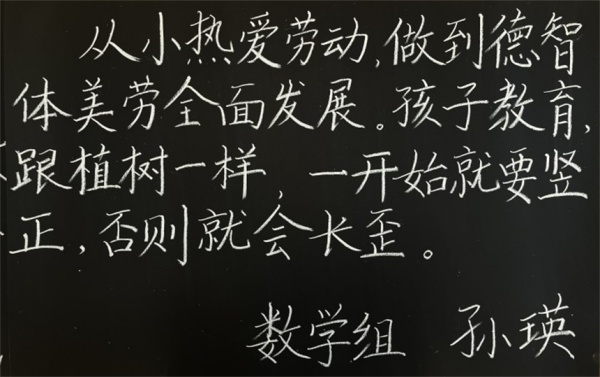 从小热爱劳动,做到德智
体美劳全面发展。孩子教育,
跟植树一样,一开始就要竖
正,否则就会长歪。
数学组 孙瑛